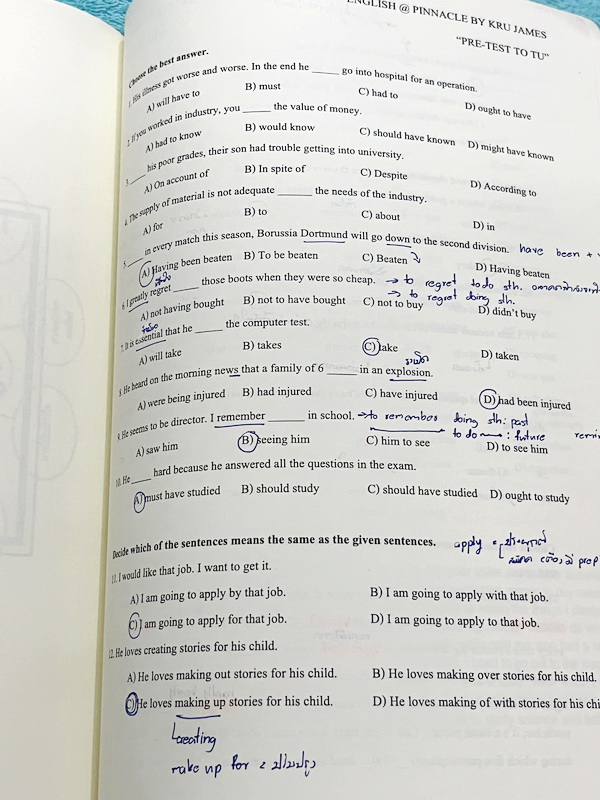 ENGLISH @ PINNACLE BY KRU JAMES
"PRE-TEST TO TU"
Choose the best answer.
1. His illness got worse and worse. In the end he _____ go into hospital for an operation.
A) will have to B) must C) had to D) ought to have
2. If you worked in industry, you _____ the value of money.
A) had to know B) would know C) should have known D) might have known
3. _____ his poor grades, their son had trouble getting into university.
A) On account of B) In spite of C) Despite D) According to
4. The supply of material is not adequate _____ the needs of the industry.
A) for B) to C) about D) in
5. _____ in every match this season, Borussia Dortmund will go down to the second division. have been +
A) Having been beaten B) To be beaten C) Beaten D) Having beaten
6. I greatly regret _____ those boots when they were so cheap. → to regret to do sth.
→ to regret doing sth.
A) not having bought B) not to have bought C) not to buy D) didn't buy
7. It is essential that he _____ the computer test.
A) will take B) takes C) take D) taken
8. He heard on the morning news that a family of 6 _____ in an explosion.
A) were being injured B) had injured C) have injured D) had been injured
9. He seems to be director. I remember _____ in school. → to remember doing sth : past
to do : future
A) saw him B) seeing him C) him to see D) to see him
10. He _____ hard because he answered all the questions in the exam.
A) must have studied B) should study C) should have studied D) ought to study
Decide which of the sentences means the same as the given sentences. apply
11. I would like that job. I want to get it.
prep
A) I am going to apply by that job. B) I am going to apply with that job.
C) I am going to apply for that job. D) I am going to apply to that job.
12. He loves creating stories for his child.
A) He loves making out stories for his child. B) He loves making over stories for his child.
C) He loves making up stories for his child. D) He loves making of with stories for his chi
creating
make up for